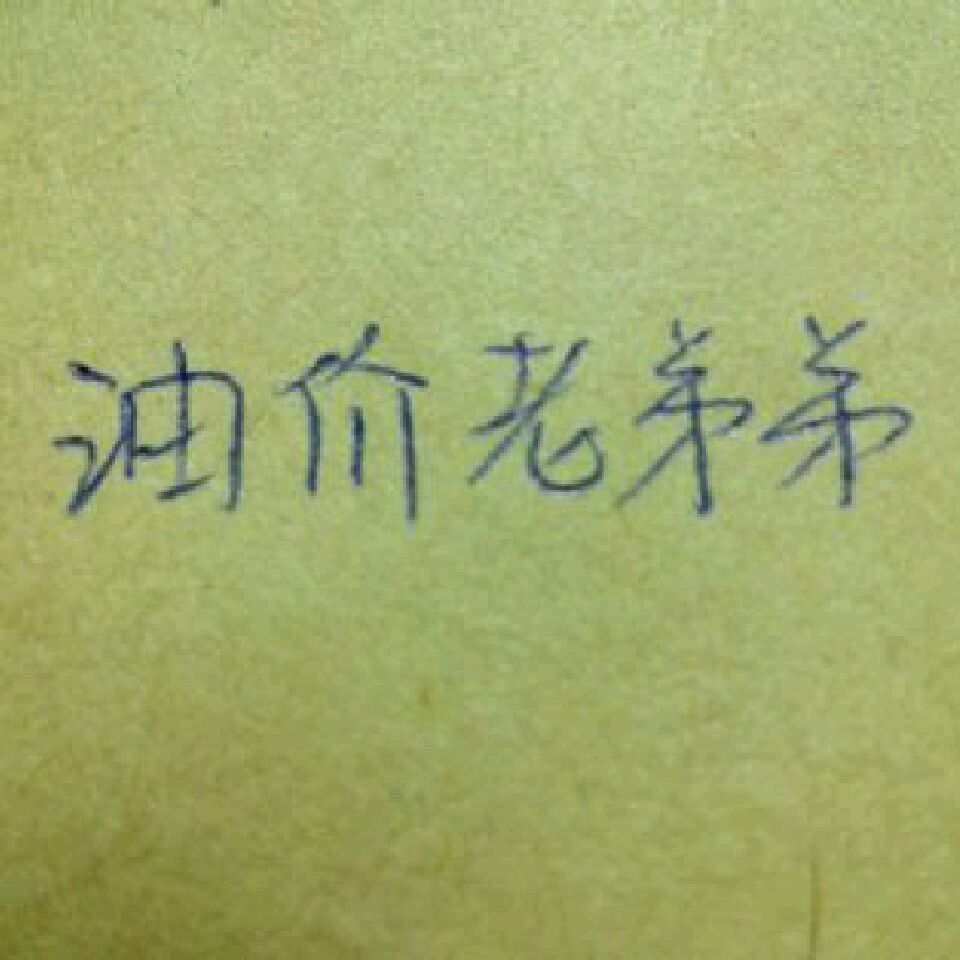 油价老弟弟